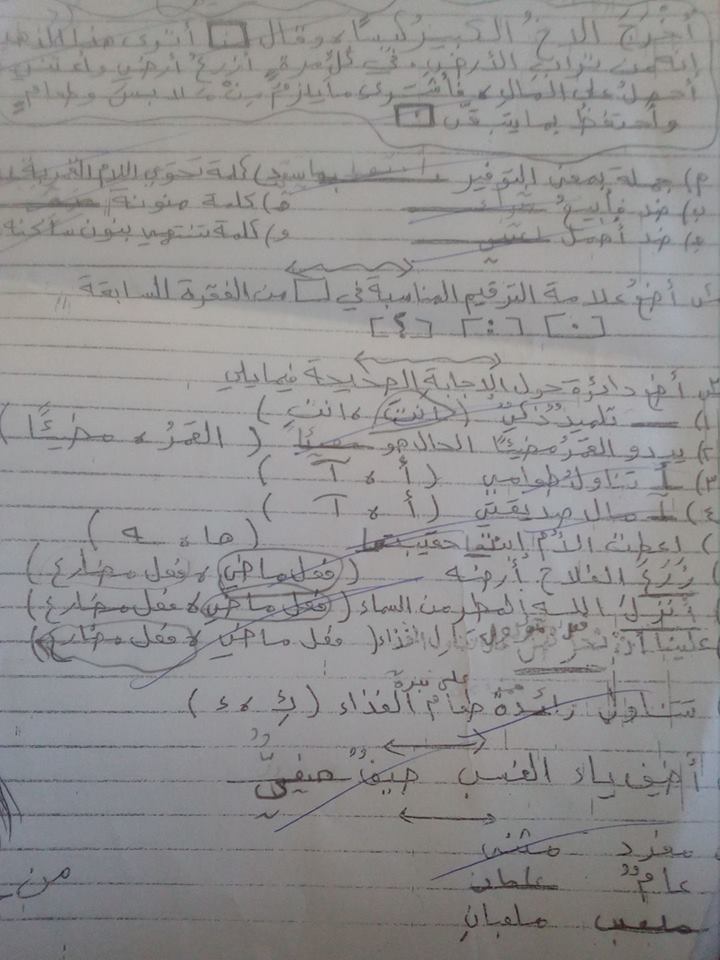 أخرجَ الاخُ الكبيرُ كيسًا، وقال [:] أتوى هذا
إنه من تراب الأرضِ، في كل مرةٍ أزرعُ أرضي وأعتني
أحصلُ على المالِ، فأشتري ما يلزمُ مِنْ ملابسَ وطعامٍ
وأحتفظُ بما يتبقّى [.]
م) جملة بمعنى التوفير د) كلمة تحوي اللام القمرية
ب) ضد فأبيعُ ه) كلمة منونة
ج) ضد أهملَ أعتني و) كلمة تنتهي بنون ساكنة
س أضعُ علامة الترقيم المناسبة في [ ] من الفقرة السابعة
[.] [:] [؟]
س أضع دائرة حول الإجابة الصحيحة فيما يلي
١) ـــ تلميذٌ ذكيٌ (انتَ، انتِ)
٢) يبدو القمرُ مضيئًا الحال هو مضيئًا (القمرُ، مضيئًا)
٣) أ تناولُ طعامي (أ، آ)
٤) آ مال صديقتي (أ، آ)
) اعطت الأم ابنتها حقيبتها (ها، ه)
) زرعَ الفلاح أرضه (فعل ماضي، فعل مضارع)
) أنزلَ الله المطر من السماء (فعل ماضي، فعل مضارع)
) علينا أنْ تناول الغذاء (فعل ماضي، فعل مضارع)
على نبرة
) تناولَ رائدةُ طعام الغذاء (ئ، ء)
أضيف ياء النسب صيفٌ صيفيّ
مفرد مثنى
عامٌ عامان من
ملعب ملعبانِ